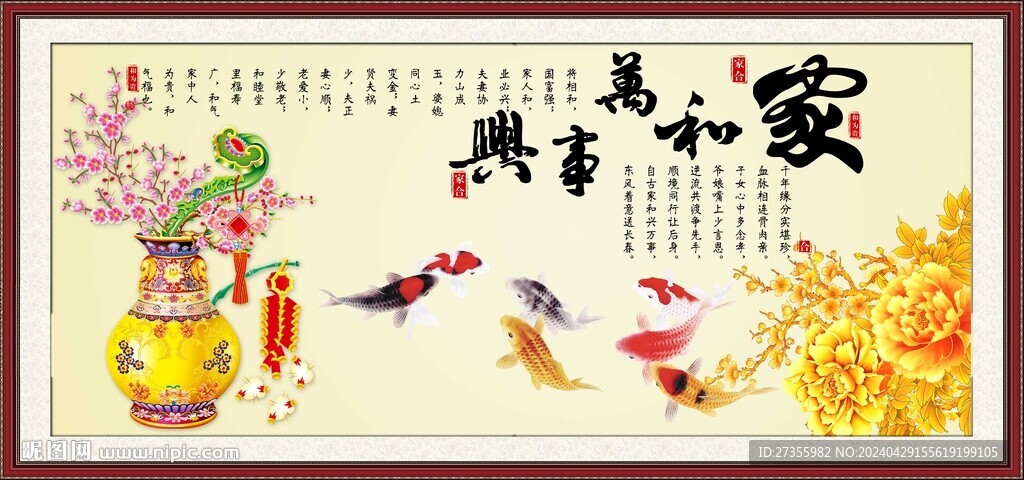 家和萬事興
和为贵
家合
家合
合
千年缘分实堪珍,
血脉相连骨肉亲。
子女心中多念孝,
爷娘嘴上少言恩。
逆流共渡争先手,
顺境同行让后身。
自古家和兴万事,
东风着意送长春。
将相和,
国富强;
家人和,
业必兴;
夫妻协
力山成
玉,婆媳
同心土
变金;妻
贤夫祸
少,夫正
妻心顺;
老爱小,
少敬老;
和睦堂
里福寿
广,和气
家中人
为贵,和
气福也。
和为贵
昵图网 www.nipic.com
ID:27355982 NO:20240429155619199105